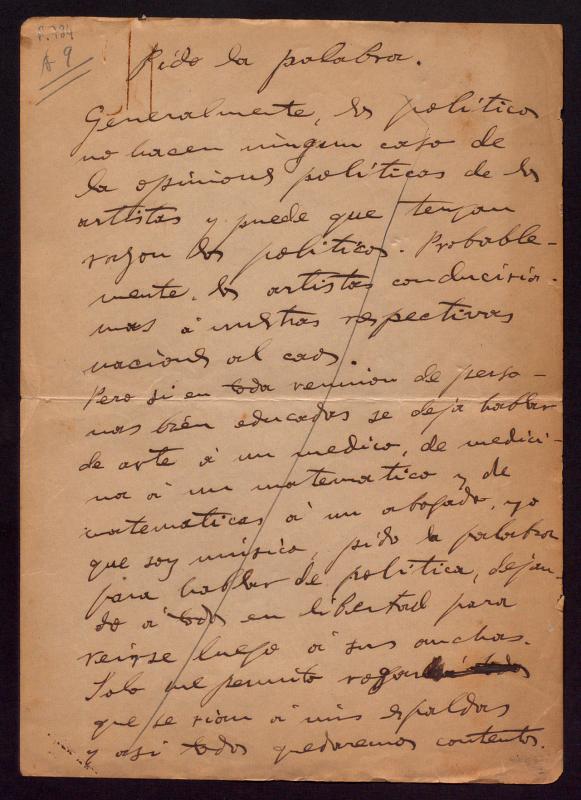 P.784
A 9
Pido la palabra.
Generalmente, los políticos
no hacen ningun caso de
la opiniones políticas de los
artistas y puede que tengan
razon los políticos. Probable-
mente, los artistas conduciria-
mos á nuestras respectivas
naciones al caos.
Pero si en toda reunion de perso-
nas bién educadas se deja hablar
de arte á un medico, de medici-
na á un matematico y de
matematicas á un abogado, yo
que soy músico, pido la palabra
para hablar de política, dejan-
do á todos en libertad para
reirse luego á sus anchas.
Solo me permito rogar
que se rian á mis espaldas
y asi todos quedaremos contentos.